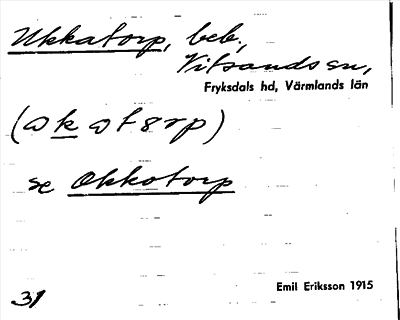 Ukkatorp, beb.,
Vitsands sn,
Fryksdals hd, Värmlands län
se Okkotorp
Emil Eriksson 1915
31